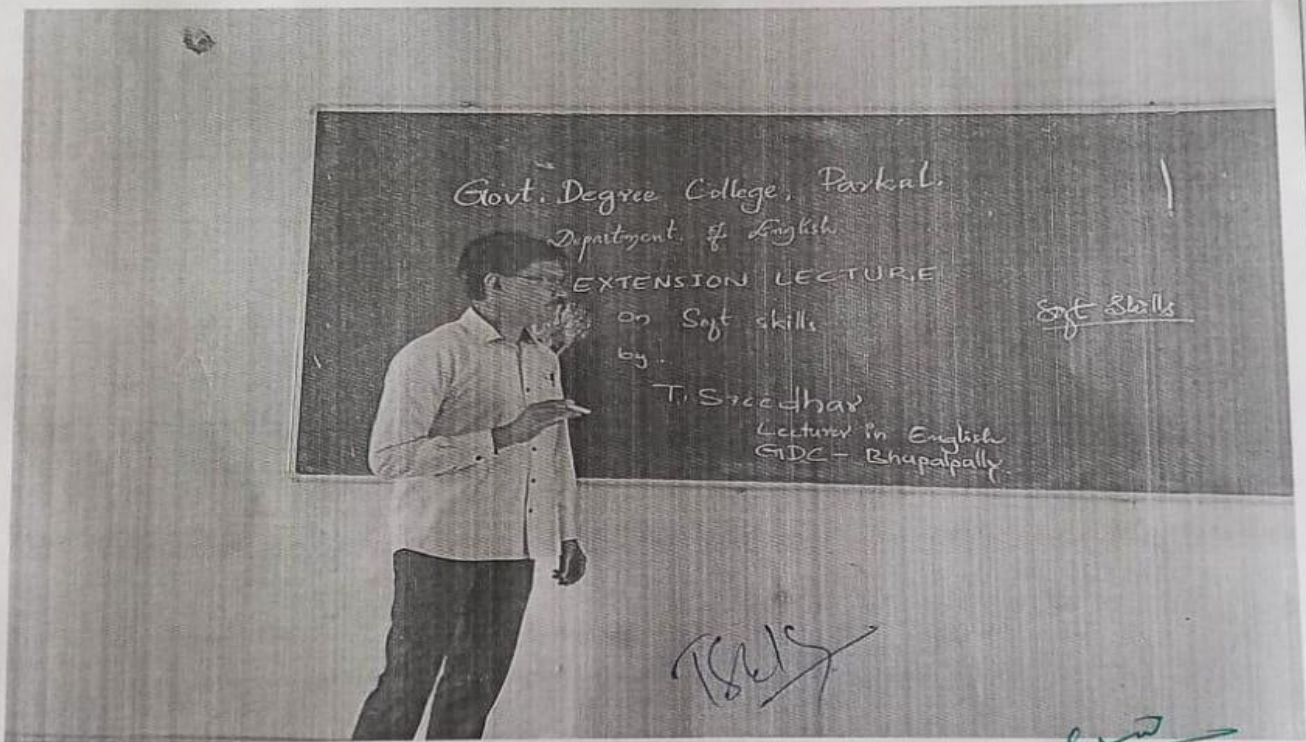 Govt. Degree College, Parkal.
Department of English
EXTENSION LECTURE
on Soft skills
by
T. Sreedhar
Lecturer in English
GDC - Bhupalpally.
Soft Skills